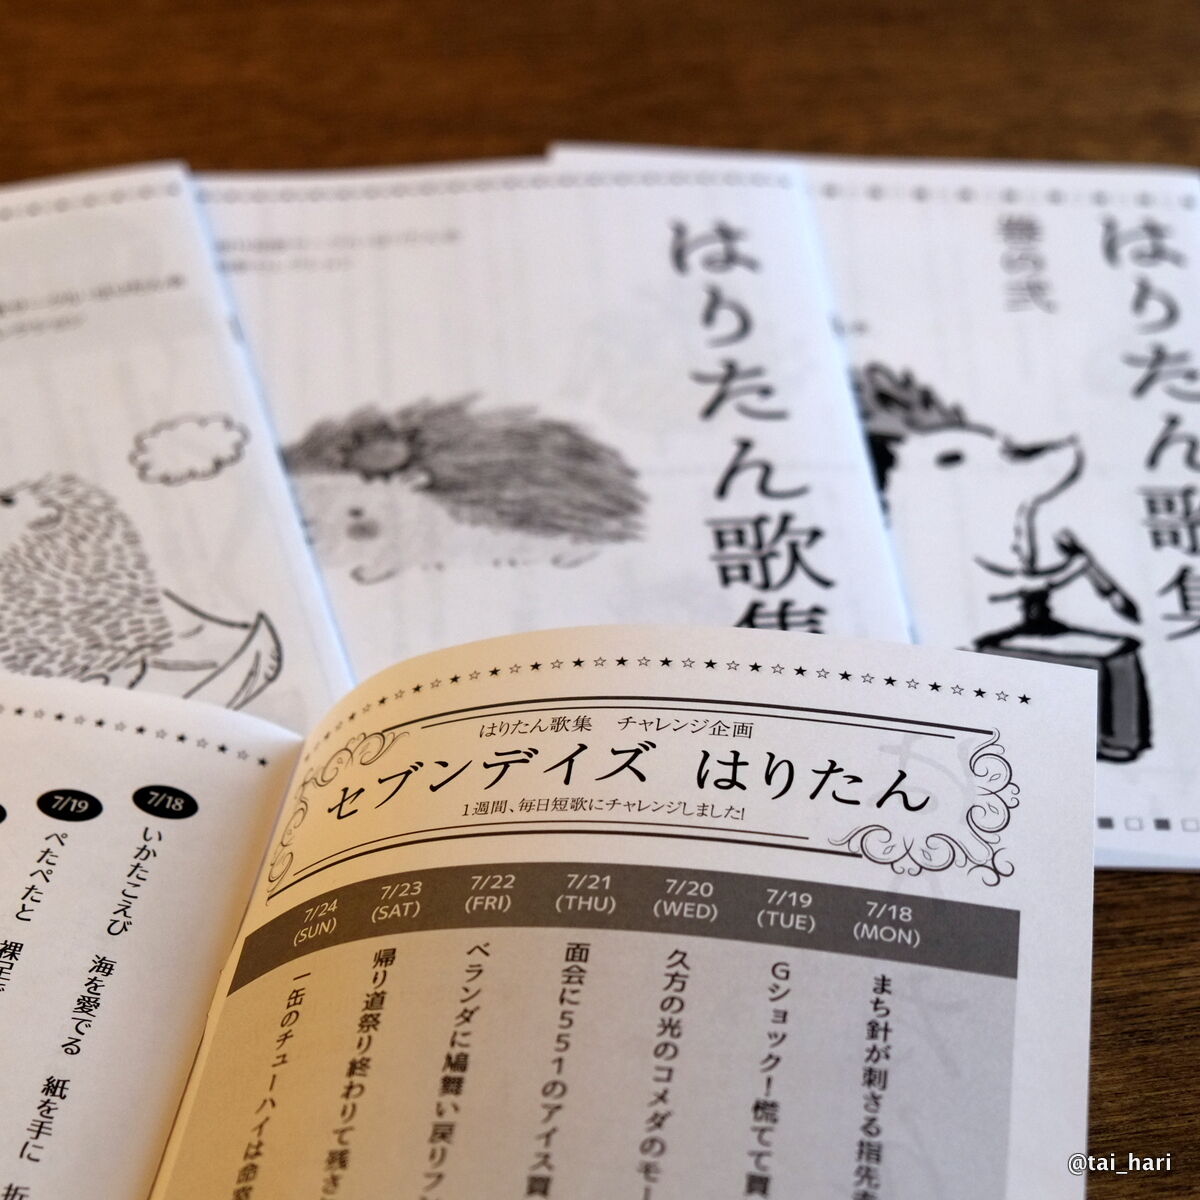 はりたん歌集
はりたん歌集
巻の弐
はりたん歌集 チャレンジ企画
セブンデイズ はりたん
1週間、毎日短歌にチャレンジしました!
7/18
(MON)
まち針が刺さる指先
7/19
(TUE)
Gショック!慌てて買
7/20
(WED)
久方の光のコメダのモー
7/21
(THU)
面会に551のアイス買
7/22
(FRI)
ベランダに鳩舞い戻りフン
7/23
(SAT)
帰り道祭り終わりて残さ
7/24
(SUN)
一缶のチューハイは命
7/18
いかたこえび 海を愛でる 紙を手に 折
7/19
ぺたぺたと 裸足で
@tai_hari